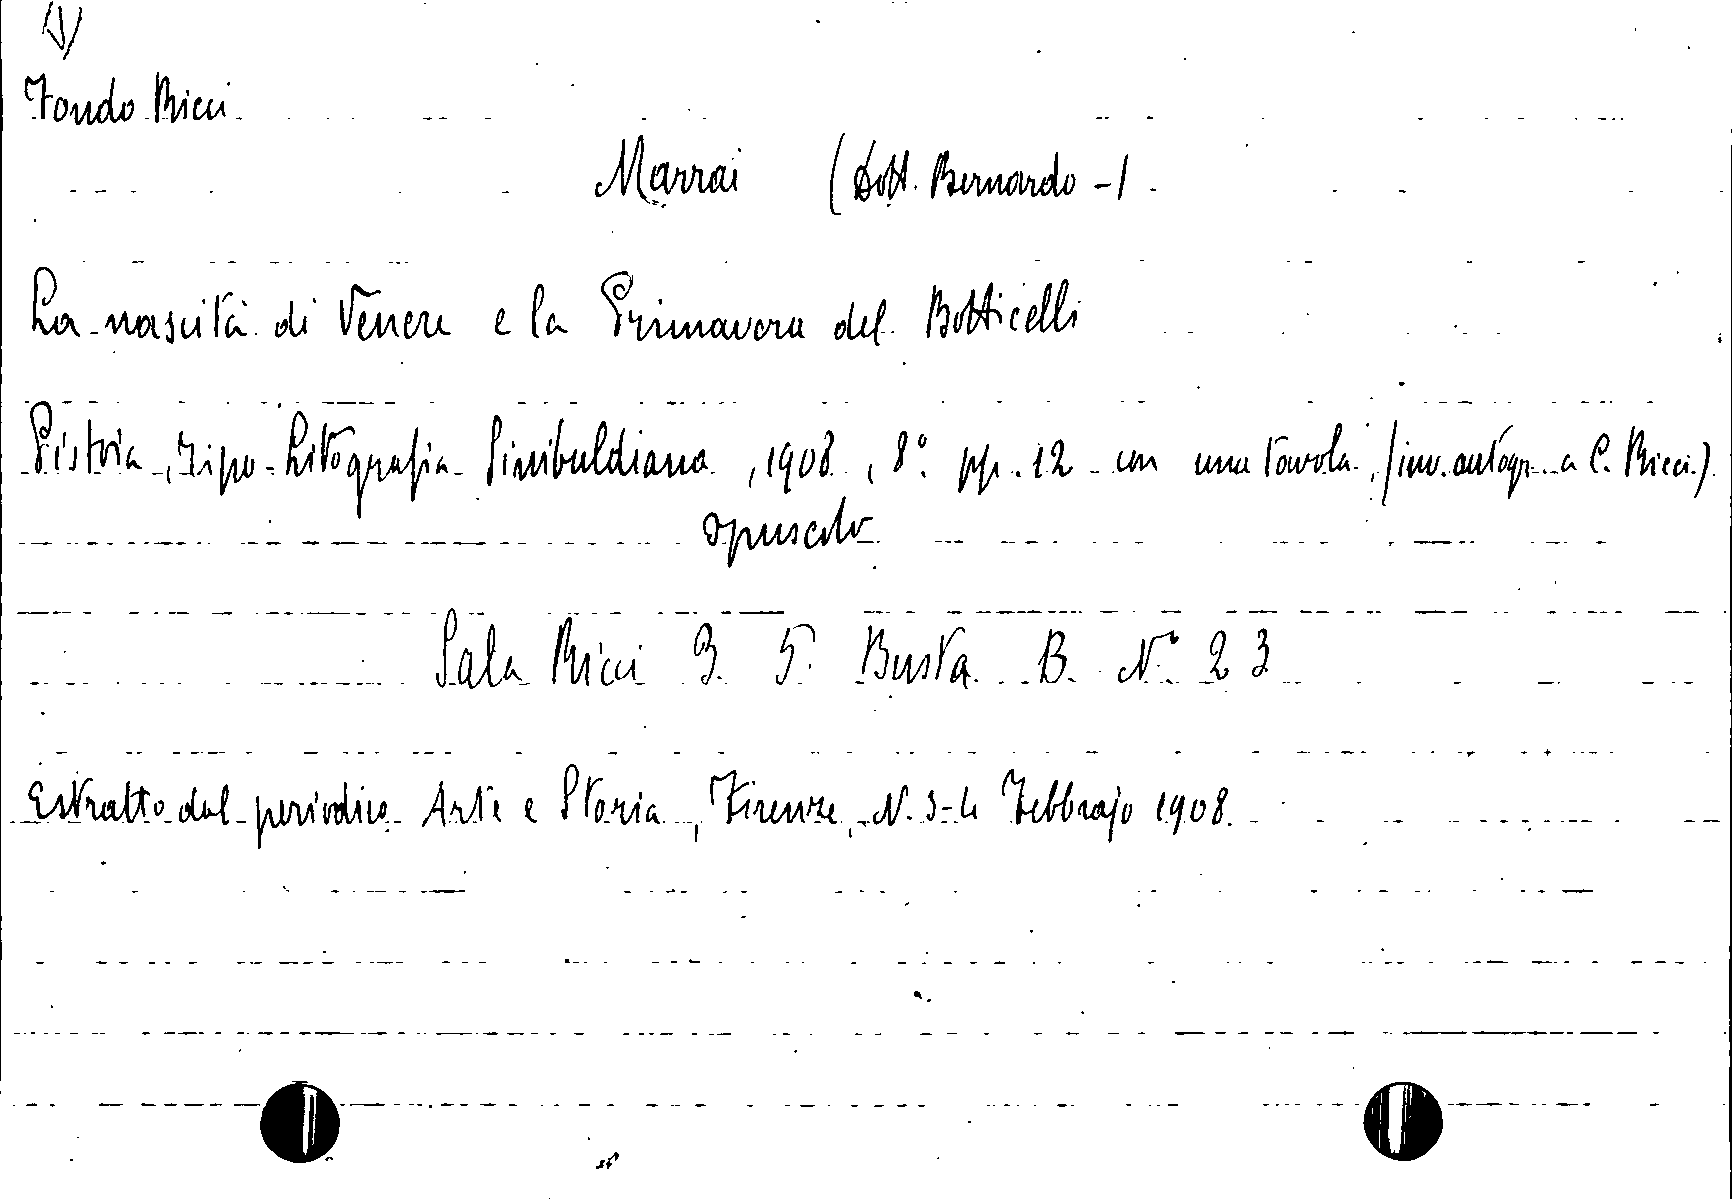 (V)
Fondo Ricci
Marrai (Dott. Bernardo -)
La nascita di Venere e la Primavera del Botticelli
Pistoia, Tipo-Litografia Sinibuldiana, 1908, 8° pp. 12 con una tavola, (inv. autogr. a C. Ricci.)
opuscolo
Sala Ricci 3. 5. Busta B. N° 23
Estratto dal periodico Arte e Storia, Firenze, N. 3-4 Febbrajo 1908.